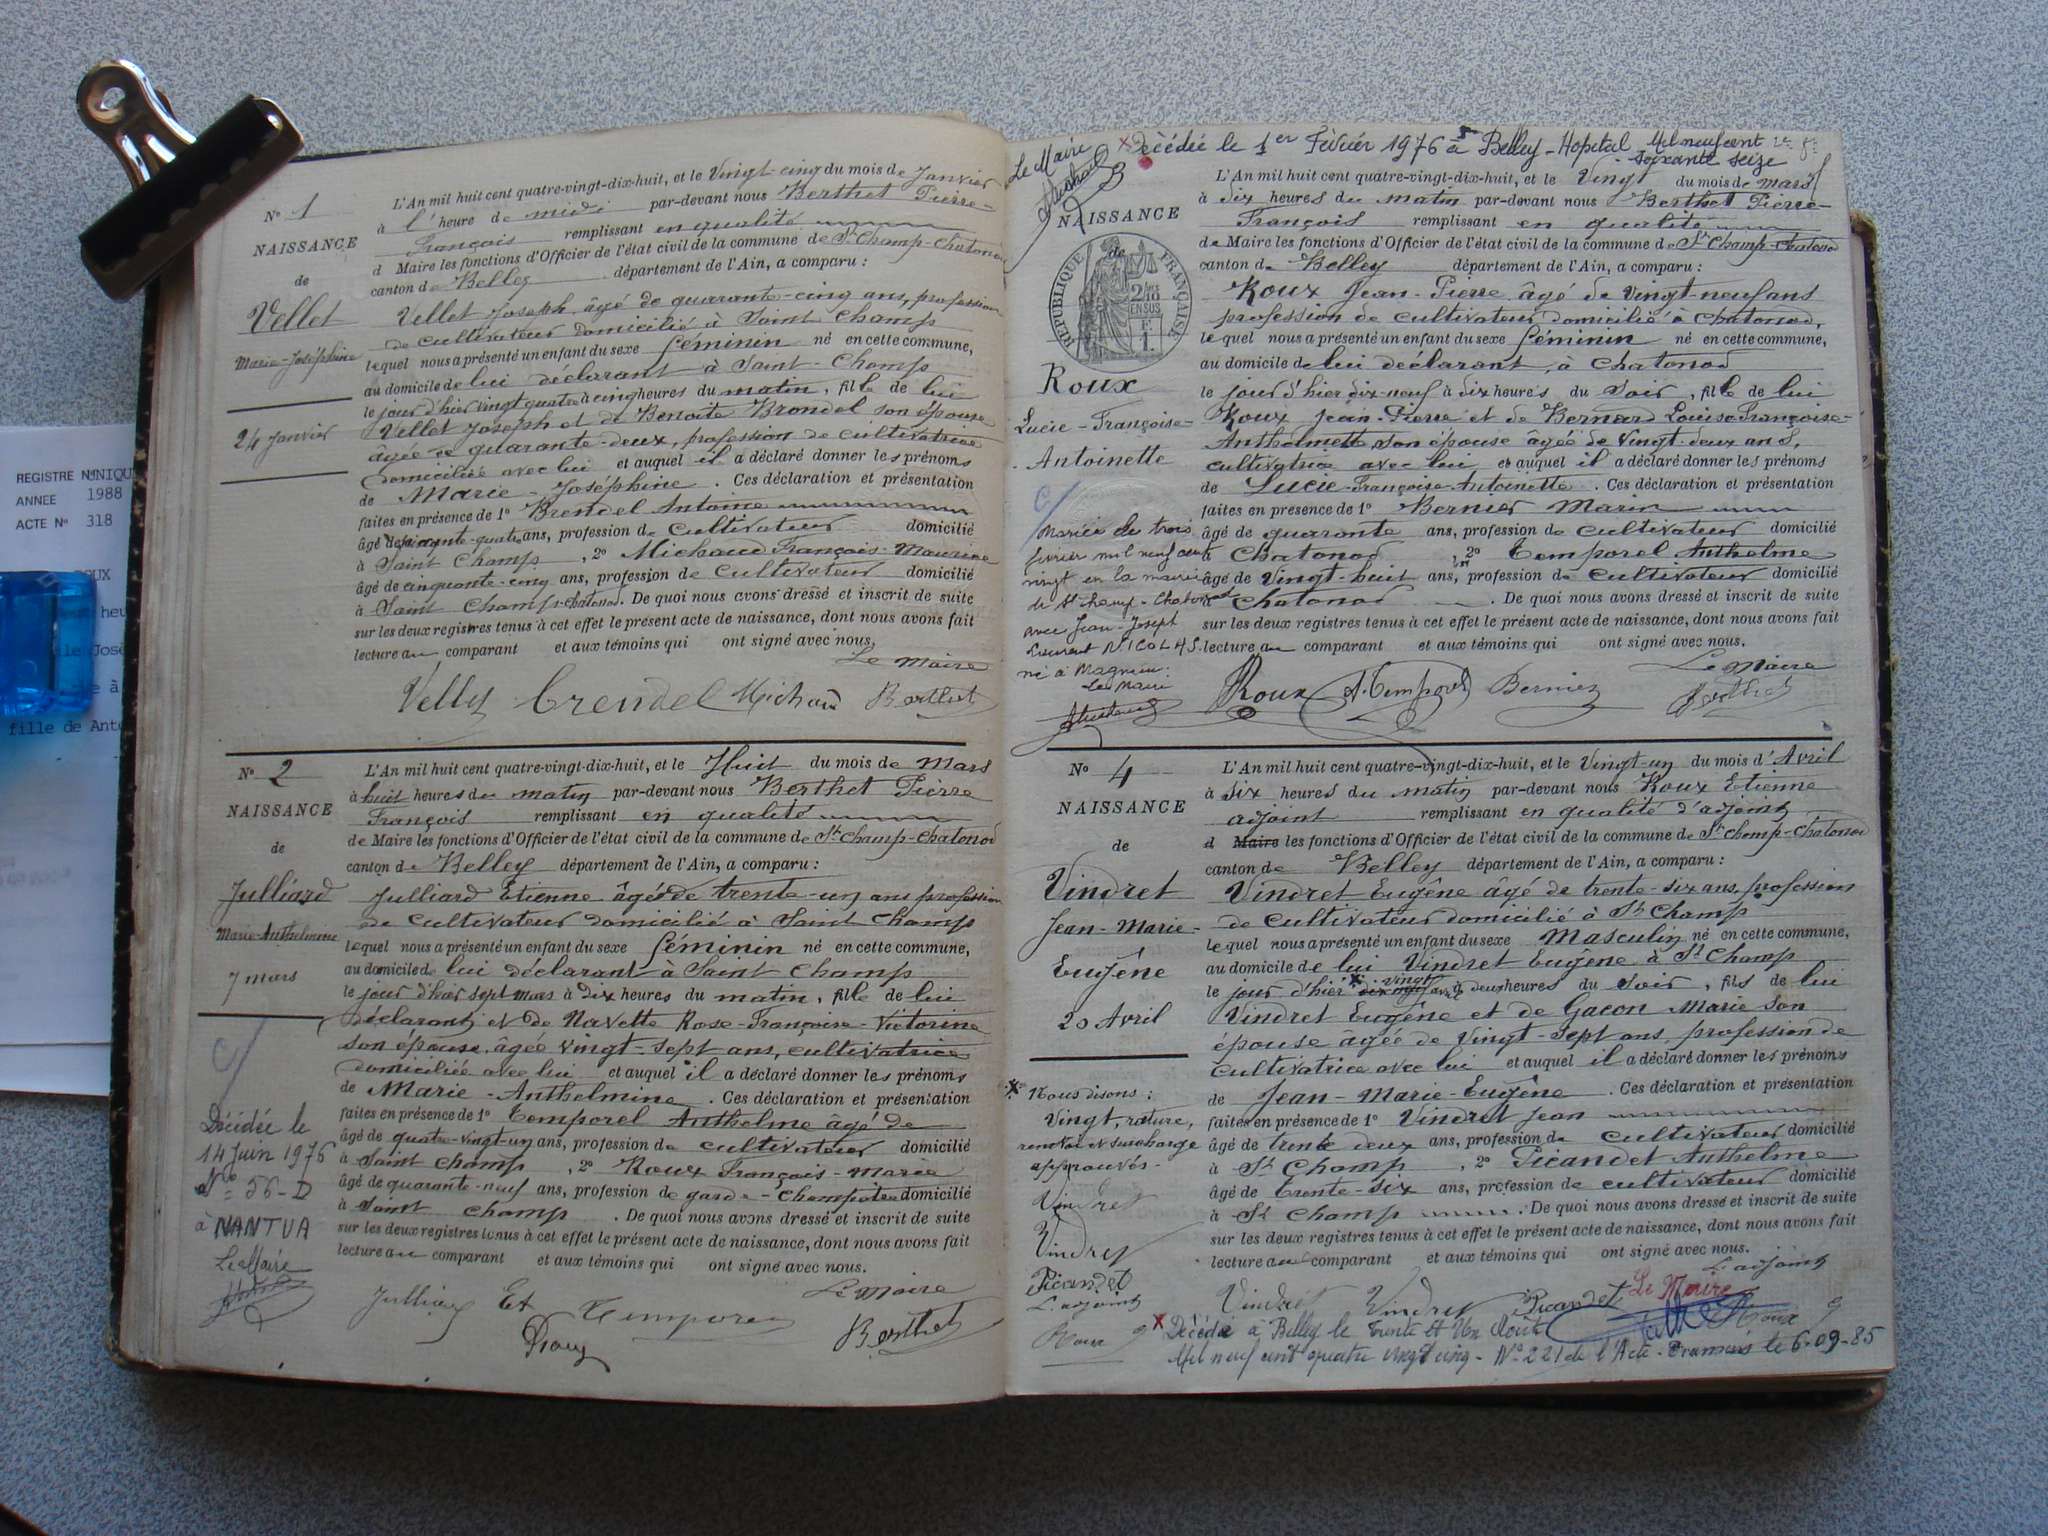 REGISTRE UNIQUE
ANNEE 1988
ACTE No 318
fille de
N° 1
NAISSANCE
de
Vellet
Marie-Joséphine
24 Janvier
L'An mil huit cent quatre-vingt-dix-huit, et le Vingt-cinq du mois de Janvier
à l'heure de midi par-devant nous Berthet Pierre-
François remplissant en qualité
d Maire les fonctions d'Officier de l'état civil de la commune de St Champ-Chatonod
canton de Belley département de l'Ain, a comparu :
Vellet Joseph âgé de quarante-cinq ans, profession
de cultivateur domicilié à Saint Champ
lequel nous a présenté un enfant du sexe féminin né en cette commune,
au domicile de lui déclarant à Saint-Champ
le jour d'hier vingt quatre à cinq heures du matin, fille de lui
Vellet Joseph et de Benoite Brondel son épouse
agée de quarante-deux, profession de cultivatrice
domiciliée avec lui et auquel il a déclaré donner les prénoms
de Marie-Joséphine. Ces déclaration et présentation
faites en présence de 1° Brendel Antoine
âgé de ans, profession de cultivateur domicilié
à Saint Champ, 2° Michaud François-Maurice
âgé de cinquante-cinq ans, profession de cultivateur domicilié
à Saint Champ-Chatonod. De quoi nous avons dressé et inscrit de suite
sur les deux registres tenus à cet effet le présent acte de naissance, dont nous avons fait
lecture au comparant et aux témoins qui ont signé avec nous.
Le Maire
Brendel Michaud Berthet
N° 2
NAISSANCE
de
Julliard
Marie-Anthelmine
7 mars
Décédée le
14 Juin 1976
N° 56-D
à NANTUA
Le Maire
L'An mil huit cent quatre-vingt-dix-huit, et le Huit du mois de Mars
à huit heures du matin par-devant nous Berthet Pierre
François remplissant en qualité
de Maire les fonctions d'Officier de l'état civil de la commune de St Champ-Chatonod
canton de Belley département de l'Ain, a comparu :
Julliard Etienne âgé de trente-un ans profession
de cultivateur domicilié à Saint Champ
lequel nous a présenté un enfant du sexe féminin né en cette commune,
au domicile de lui déclarant à Saint Champ
le jour d'hier sept mars à dix heures du matin, fille de lui
déclarant et de Navette Rose-Françoise-Victorine
son épouse âgée vingt-sept ans, cultivatrice
domiciliée avec lui et auquel il a déclaré donner les prénoms
de Marie-Anthelmine. Ces déclaration et présentation
faites en présence de 1° Temporel Anthelme âgé de
âgé de quatre-vingt-un ans, profession de cultivateur domicilié
à Saint Champ, 2° Roux François-Marie
âgé de quarante-neuf ans, profession de garde-champêtre domicilié
à Saint Champ. De quoi nous avons dressé et inscrit de suite
sur les deux registres tenus à cet effet le présent acte de naissance, dont nous avons fait
lecture au comparant et aux témoins qui ont signé avec nous.
Le Maire
Berthet
Le Maire
x Décédée le 1er Février 1976 à Belley-Hopital Mil neuf cent
soixante seize
3
NAISSANCE
de
RÉPUBLIQUE FRANÇAISE
2/10 EN SUS
Roux
Lucie-Françoise-
Antoinette
Mariée le trois
février mil neuf cent
vingt en la mairie
de St Champ-Chatonod
avec Jean-Joseph
Laurent NICOLAS
né à
Le Maire
L'An mil huit cent quatre-vingt-dix-huit, et le Vingt du mois de mars
à dix heures du matin par-devant nous Berthet Pierre-
François remplissant en qualité
de Maire les fonctions d'Officier de l'état civil de la commune de St Champ-Chatonod
canton de Belley département de l'Ain, a comparu :
Roux Jean-Pierre âgé de vingt-neuf ans
profession de cultivateur domicilié à Chatonod,
lequel nous a présenté un enfant du sexe féminin né en cette commune,
au domicile de lui déclarant, à Chatonod
le jour d'hier dix-neuf à dix heures du Soir, fille de lui
Roux Jean-Pierre et de Bernard Louise Françoise-
Anthelmette son épouse âgée de vingt-deux ans,
cultivatrice avec lui et auquel il a déclaré donner les prénoms
de Lucie-Françoise-Antoinette. Ces déclaration et présentation
faites en présence de 1° Bernier Marin
âgé de quarante ans, profession de cultivateur domicilié
à Chatonod, 2° Temporel Anthelme
âgé de Vingt-huit ans, profession de cultivateur domicilié
à Chatonod. De quoi nous avons dressé et inscrit de suite
sur les deux registres tenus à cet effet le présent acte de naissance, dont nous avons fait
lecture au comparant et aux témoins qui ont signé avec nous.
Le Maire
Roux A. Temporel Bernier Berthet
N° 4
NAISSANCE
de
Vindret
Jean-Marie-
Eugène
20 Avril
x Nous disons :
Vingt, rature,
renvoi et surcharge
approuvés.
Vindret
Vindret
Picandet
L'adjoint
Roux
L'An mil huit cent quatre-vingt-dix-huit, et le Vingt-un du mois d'Avril
à six heures du matin par-devant nous Roux Etienne
adjoint remplissant en qualité d'adjoint
d Maire les fonctions d'Officier de l'état civil de la commune de St Champ-Chatonod
canton de Belley département de l'Ain, a comparu :
Vindret Eugène âgé de trente-six ans, profession
de cultivateur domicilié à St Champ
lequel nous a présenté un enfant du sexe Masculin né en cette commune,
au domicile de lui Vindret Eugène à St Champ
le jour d'hier x vingt dix neuf avril à deux heures du Soir, fils de lui
Vindret Eugène et de Gacon Marie son
épouse âgée de Vingt-sept ans, profession de
cultivatrice avec lui et auquel il a déclaré donner les prénoms
de Jean-Marie-Eugène. Ces déclaration et présentation
faites en présence de 1° Vindret Jean
âgé de trente deux ans, profession de cultivateur domicilié
à St Champ, 2° Picandet Anthelme
âgé de trente-six ans, profession de cultivateur domicilié
à St Champ. De quoi nous avons dressé et inscrit de suite
sur les deux registres tenus à cet effet le présent acte de naissance, dont nous avons fait
lecture au comparant et aux témoins qui ont signé avec nous.
L'adjoint
Vindret Vindret Picandet Le Maire Roux
x Décédé à Belley le trente et un Août
Mil neuf cent quatre vingt cinq - N° 221 de l'Acte - Transmis le 6-09-85